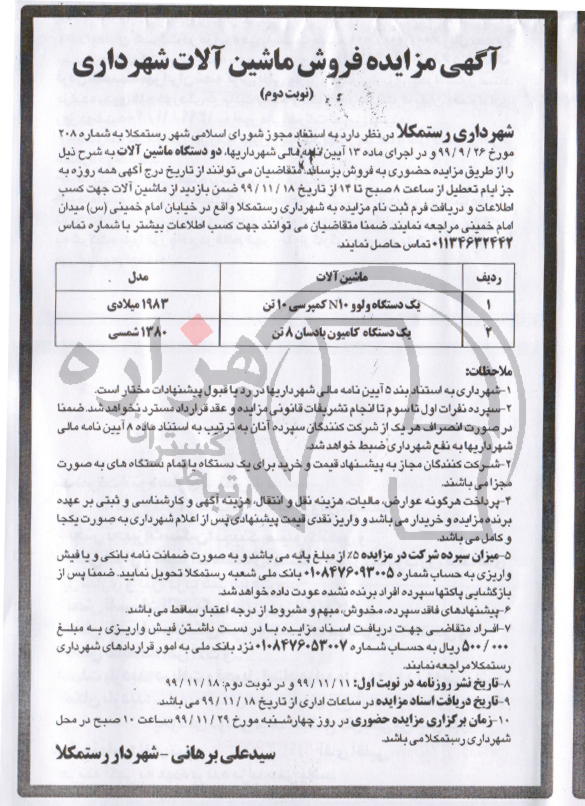 آگهی مزایده فروش ماشین آلات شهرداری
(نوبت دوم)
شهرداری رستمکلا در نظر دارد به استناد مجوز شورای اسلامی شهر رستمکلا به شماره ۲۰۸
مورخ ۹۹/۹/۲۶ و در اجرای ماده ۱۳ آیین نامه مالی شهرداریها، دو دستگاه ماشین آلات به شرح ذیل
را از طریق مزایده حضوری به فروش برساند. متقاضیان می توانند از تاریخ درج آگهی همه روزه به
جز ایام تعطیل از ساعت ۸ صبح تا ۱۴ از تاریخ ۹۹/۱۱/۱۸ ضمن بازدید از ماشین آلات جهت کسب
اطلاعات و دریافت فرم ثبت نام مزایده به شهرداری رستمکلا واقع در خیابان امام خمینی (س) میدان
امام خمینی مراجعه نمایند. ضمنا متقاضیان می توانند جهت کسب اطلاعات بیشتر با شماره تماس
۰۱۱۳۴۶۳۲۴۴۲ تماس حاصل نمایند.
ردیف ماشین آلات مدل
۱ یک دستگاه ولوو N۱۰ کمپرسی ۱۰ تن ۱۹۸۳ میلادی
۲ یک دستگاه کامیون بادسان ۸ تن ۱۳۸۰ شمسی
ملاحظات:
۱-شهرداری به استناد بند ۵ آیین نامه مالی شهرداریها در رد یا قبول پیشنهادات مختار است.
۲-سپرده نفرات اول تا سوم تا انجام تشریفات قانونی مزایده و عقد قرارداد مسترد نخواهد شد. ضمنا
در صورت انصراف هر یک از شرکت کنندگان سپرده آنان به ترتیب به استناد ماده ۸ آیین نامه مالی
شهرداریها به نفع شهرداری ضبط خواهد شد.
۳-شرکت کنندگان مجاز به پیشنهاد قیمت و خرید برای یک دستگاه یا تمام دستگاه های به صورت
مجزا می باشند.
۴-پرداخت هرگونه عوارض، مالیات، هزینه نقل و انتقال، هزینه آگهی و کارشناسی و ثبتی بر عهده
برنده مزایده و خریدار می باشد و واریز نقدی قیمت پیشنهادی پس از اعلام شهرداری به صورت یکجا
و کامل می باشد.
۵-میزان سپرده شرکت در مزایده ۵٪ از مبلغ پایه می باشد و به صورت ضمانت نامه بانکی و یا فیش
واریزی به حساب شماره ۰۱۰۸۴۷۶۰۹۳۰۰۵ بانک ملی شعبه رستمکلا تحویل نمایید. ضمنا پس از
بازگشایی پاکتها سپرده افراد برنده نشده عودت داده خواهد شد.
۶-پیشنهادهای فاقد سپرده، مخدوش، مبهم و مشروط از درجه اعتبار ساقط می باشد.
۷-افراد متقاضی جهت دریافت اسناد مزایده با در دست داشتن فیش واریزی به مبلغ
۵۰۰/۰۰۰ ریال به حساب شماره ۰۱۰۸۴۷۶۰۵۳۰۰۷ نزد بانک ملی به امور قراردادهای شهرداری
رستمکلا مراجعه نمایند.
۸-تاریخ نشر روزنامه در نوبت اول: ۹۹/۱۱/۱۱ و در نوبت دوم: ۹۹/۱۱/۱۸
۹-تاریخ دریافت اسناد مزایده در ساعات اداری از تاریخ ۹۹/۱۱/۱۸ می باشد.
۱۰-زمان برگزاری مزایده حضوری در روز چهارشنبه مورخ ۹۹/۱۱/۲۹ ساعت ۱۰ صبح در محل
شهرداری رستمکلا می باشد.
سیدعلی برهانی - شهردار رستمکلا
هزاره
گستران
ارتباط